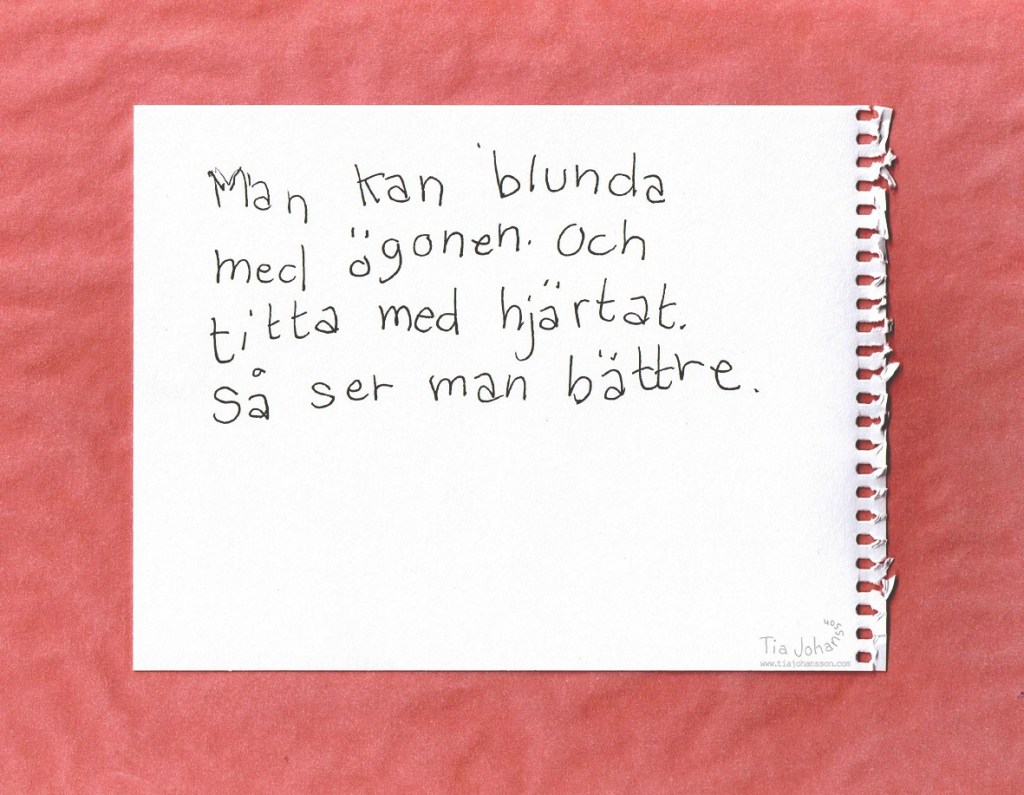 Man kan blunda
med ögonen. Och
titta med hjärtat.
Så ser man bättre.
Tia Johansson
www.tiajohansson.com